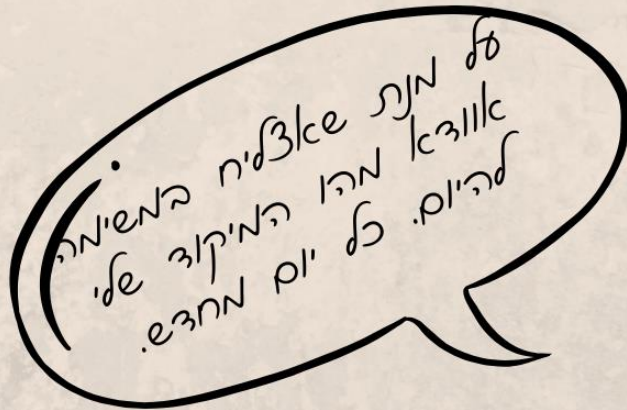 על מנת שאצליח במשימה
אוודא מהו המיקוד שלי
להיום. כל יום מחדש.